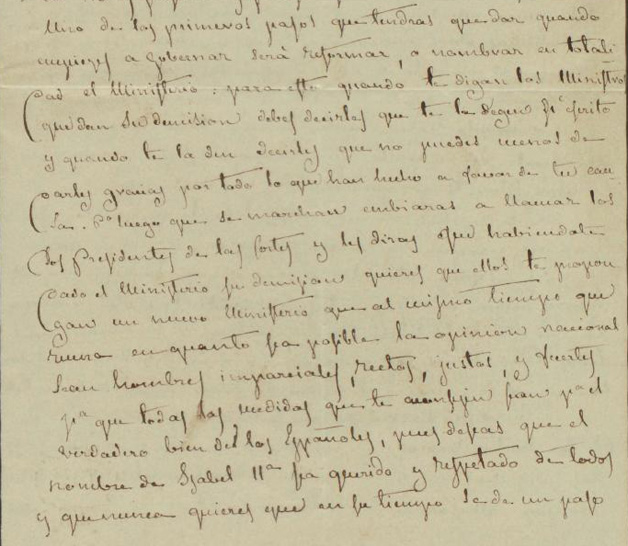 Uno de los primeros pasos que tendras que dar quando
empieses a gobernar será reformar, o nombrar en totali
dad el Ministerio: para esto quando te digan los Ministros
que dan su demision debes decirles que te la deguen pr escrito
y quando te la den decirles que no puedes menos de
darles gracias por todo lo que han hecho a favor de tu cau
sa. Pa luego que se marchan embiaras a llamar los
dos presidentes de las Cortes y les diras que habiendote
dado el Ministerio su demision quieres que ellos te propon
gan un nuevo Ministerio que al mismo tiempo que
reuna en quanto sea posible la opinion nacional
sean hombres imparciales, rectos, justos, y fuertes
pa que todas las medidas que te aconsejen sean pa el
verdadero bien de los Españoles, pues deseas que el
nombre de Ysabel IIa sea querido y respetado de todos
y que nunca quieres que en su tiempo se de un paso